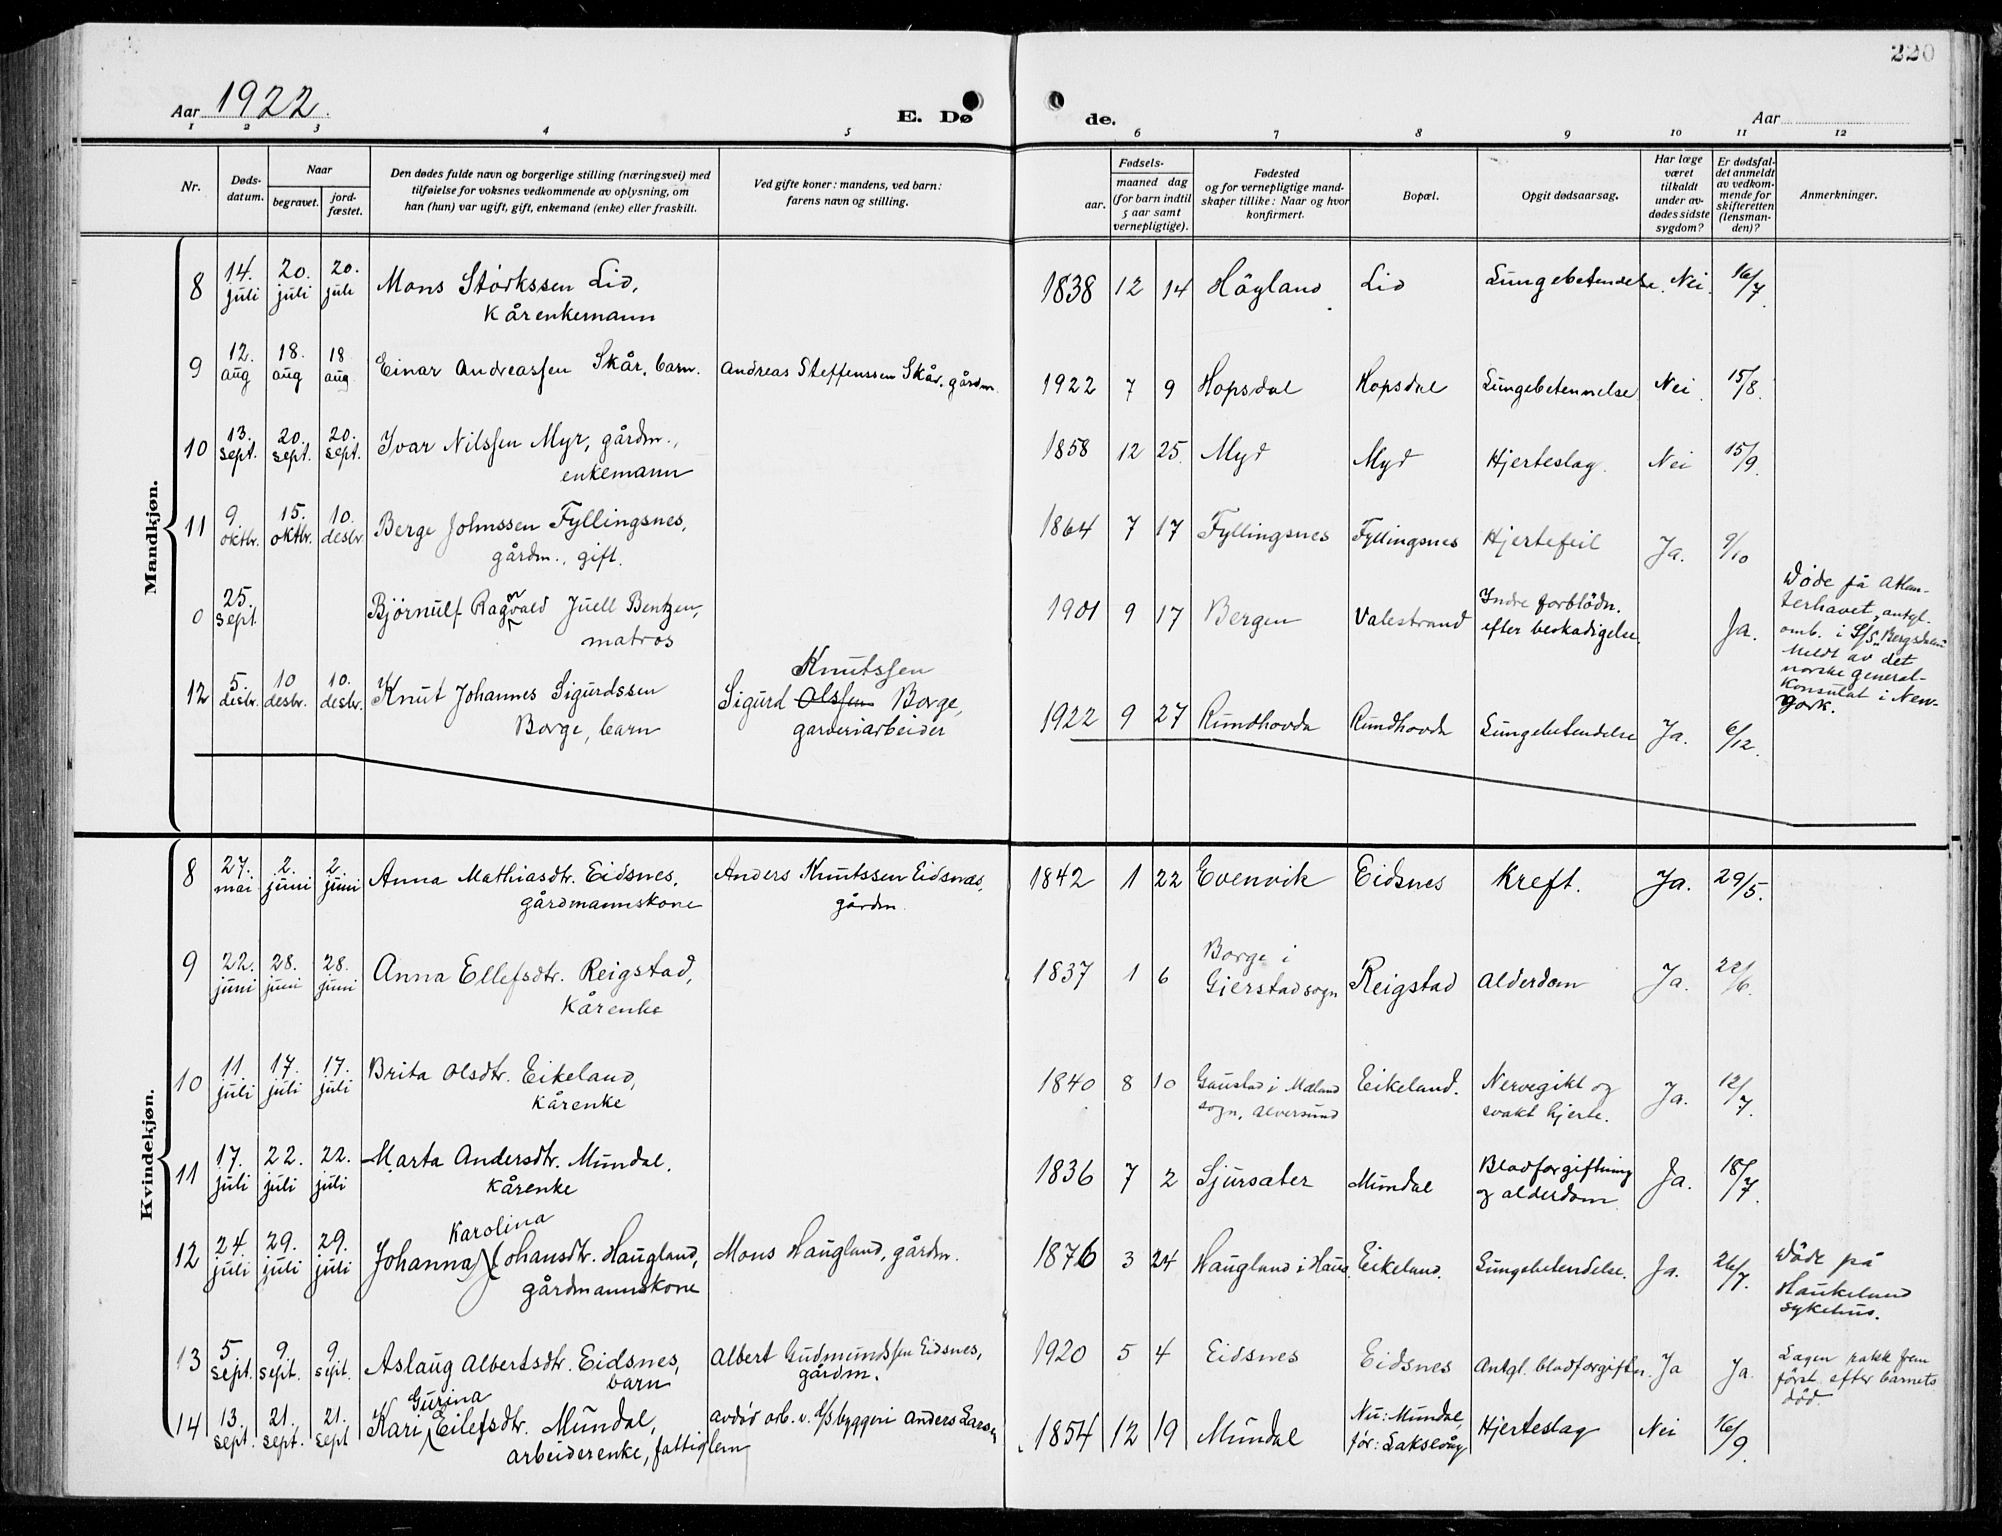 220
Aar 1922.
E. Døde.
Aar
1 2 3 4 5 6 7 8 9 10 11 12
Nr.
Døds-datum.
Naar
begravet.
jord-fæstet.
Den dødes fulde navn og borgerlige stilling (næringsvei) med
tilføielse for voksnes vedkommende av oplysning, om
han (hun) var ugift, gift, enkemand (enke) eller fraskilt.
Ved gifte koner: mandens, ved barn:
farens navn og stilling.
Fødsels-
aar.
maaned dag
(for barn indtil
5 aar samt
vernepligtige).
Fødested
og for vernepligtige mand-
skaper tillike: Naar og hvor
konfirmert.
Bopæl.
Opgit dødsaarsag.
Har læge
været
tilkaldt
under av-
dødes sidste
sygdom?
Er dødsfal-
det anmeldt
av vedkom-
mende for
skifteretten
(lensman-
den)?
Anmerkninger.
Mandkjøn.
8 14. juli 20. juli 20. juli Mons Störkssen Lid, 1838 12 14 Höyland Lid Lungebetendelse. Nei. 16/7
Kårenkemann
9 12. aug 18. aug 18 aug Einar Andreassen Skår, barn. Andreas Steffenssen Skår, gårdm. 1922 7 9 Hopsdal Hopsdal Lungebetennelse Nei 15/8.
10 13. sept. 20. sept. 20. sept. Ivar Nilssen Myr, gårdm., 1858 12 25. Myd Myd Hjerteslag. Nei 15/9.
enkemann
11 9. oktbr. 15. oktbr. 10. desbr. Berge Johnssen Fyllingsnes, 1864 7 17 Fyllingsnes Fyllingsnes Hjertefeil Ja. 9/10
gårdm., gift.
0 25. sept. Bjørnulf Ragnvald Juell Bentzen, 1901 9 17 Bergen Valestrand Indre forblödn. Ja.
matros efter beskadigelse.
Döde på Atlan-
terhavet, antgl.
omb. i S/S "Bergsdalen"
Meldt av det
norske general-
konsulat i New-
York.
12 5. desbr. 10 desbr. 10. desbr. Knut Johannes Sigurdssen Sigurd Olssen Knutssen Borge, 1922 9 27 Rundhovda Rundhovda Lungebetendelse Ja. 6/12.
Borge, barn garveriarbeider
Kvindekjøn.
8 27. mai 2. juni 2. juni Anna Mathiasdtr. Eidsnes, Anders Knutssen Eidsnes, 1842 1 22 Evenvik Eidsnes Kreft. Ja. 29/5.
gårdmannskone gårdm.
9 22. juni 28. juni 28. juni Anna Ellefsdtr. Reigstad, 1837 1 6 Borge i Gjerstad sogn Reigstad Alderdom Ja. 22/6.
Kårenke
10 11. juli 17. juli 17. juli Brita Olsdtr. Eikeland, 1840 8 10 Gaustad i Mæland Eikeland. Nervegikt og Ja. 12/7.
Kårenke sogn, Alversund svakt hjerte.
11 17. juli 22. juli 22. juli Marta Andersdtr. Mundal. 1836 7 2 Sjursæter Mundal Blodforgiftning Ja. 18/7.
Kårenke og alderdom
12 24. juli 29. juli 29. juli Johanna Karolina Johansdtr. Haugland, Mons Haugland, gårdm. 1876 3 24 Haugland i Haus. Eikeland. Lungebetendelse. Ja. 26/7.
gårdmannskone
Döde på
Haukeland
sykehus.
13 5. sept. 9. sept. 9. sept. Aslaug Albertsdtr. Eidsnes, Albert Gudmundssen Eidsnes, 1920 5 4 Eidsnes Eidsnes Antgl. blodforgiftn. Ja Ja.
barn gårdm.
Lægen rakk frem
först efter barnets
död.
14 13. sept. 21. sept. 21. sept Kari Gurina Eilefsdtr. Mundal, avdöd arb. v. byggeri Anders Larsen 1854 12 19 Mundal Nu: Mundal, Hjerteslag Nei 16/9.
arbeiderenke, fattiglem før: Laksevåg